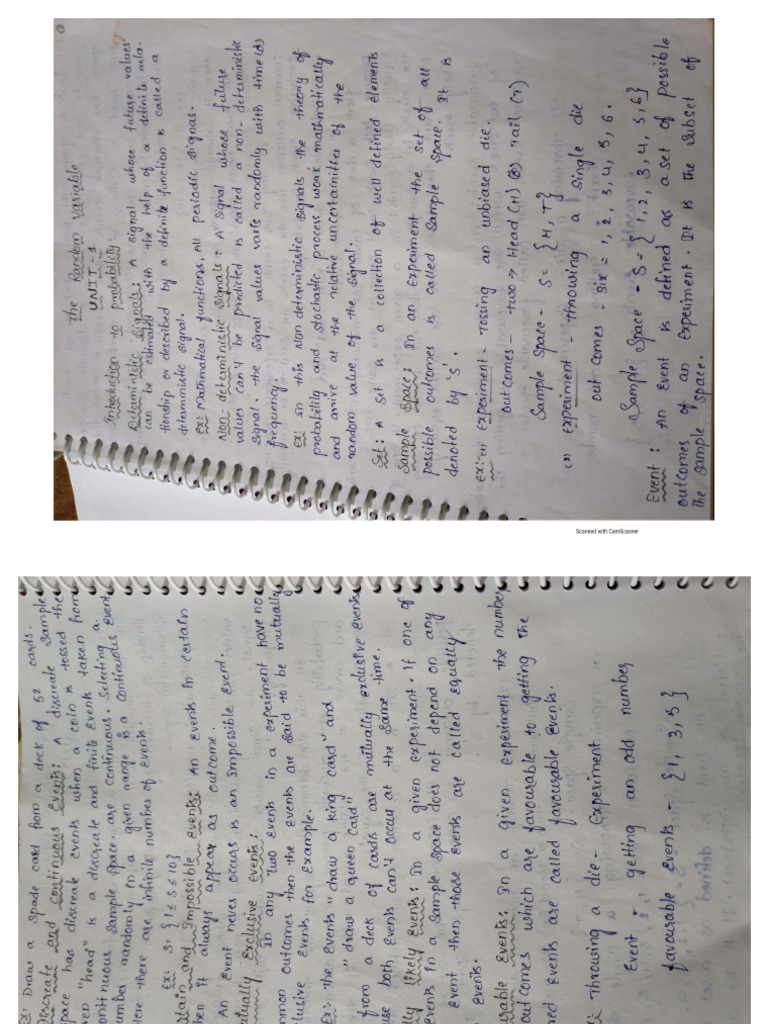 The Random Variable
UNIT-1
Introduction to probability:
Deterministic Signals: A signal whose future values
can be estimated with the help of a definite rela-
tionship or described by a definite function is called a
deterministic signal.
Ex: Mathmatical functions, All periodic signas.
Non-deterministic Signals: A signal whose future
values can't be predicted is called a non-deterministic
signal. the signal values varie randomly with time (or)
frequency.
Ex: in this Non deterministic signals the theory of
probability, and stochastic process work mathmatically
and arrive at the relative uncertainities of the
random value of the signal.
Set: A set is a collection of well defined elements
Sample Space: In an Experiment the set of all
possible outcomes is called Sample Space. It is
denoted by 's'.
Ex:- Experiment - Tossing an unbiased die.
outcomes - two → Head (H) (or) Tail (T)
Sample Space - S = {H, T}
Experiment - Throwing a single die
out comes - six = 1, 2, 3, 4, 5, 6.
Sample Space - S = {1, 2, 3, 4, 5, 6}
Event: An Event is defined as a set of possible
outcomes of an Experiment. It is the subset of
the sample space.
Scanned with CamScanner
Ex: Draw a spade card from a deck of 52 cards.
Discreate and continuous Events: A discreate Sample
space has discreate events when a coin is tossed the
even "head" is a discreate and finite Events taken from
continuous Sample space are continuous. Selecting a
number randomly in a given range is a continuous Event
Here there are infinite number of Events.
Ex: S = {1 ≤ S ≤ 10}
rtain and Impossible events: An Events in certain
hen it always appear as outcome.
An Event never occurs is an Impossible Event.
utually Exclusive Events:
In any two Events in a experiment have no
mmon outcomes then the events are said to be mutually
clusive Events. for Example.
Ex: the Events "draw a king card" and
"draw a queen card"
from a deck of cards are mutually exclusive Events
use both Events can't occurs at the same time.
lly likely Events: In a given experiment. if one of
events in a sample space does not depend on any
event then those Events are called equally
events.
urable Events: In a given experiment the number
outcomes which are favourable to getting the
red Events are called favourable Events.
: Throwing a die - Experiment
Event - getting an odd number
favourable events - {1, 3, 5}